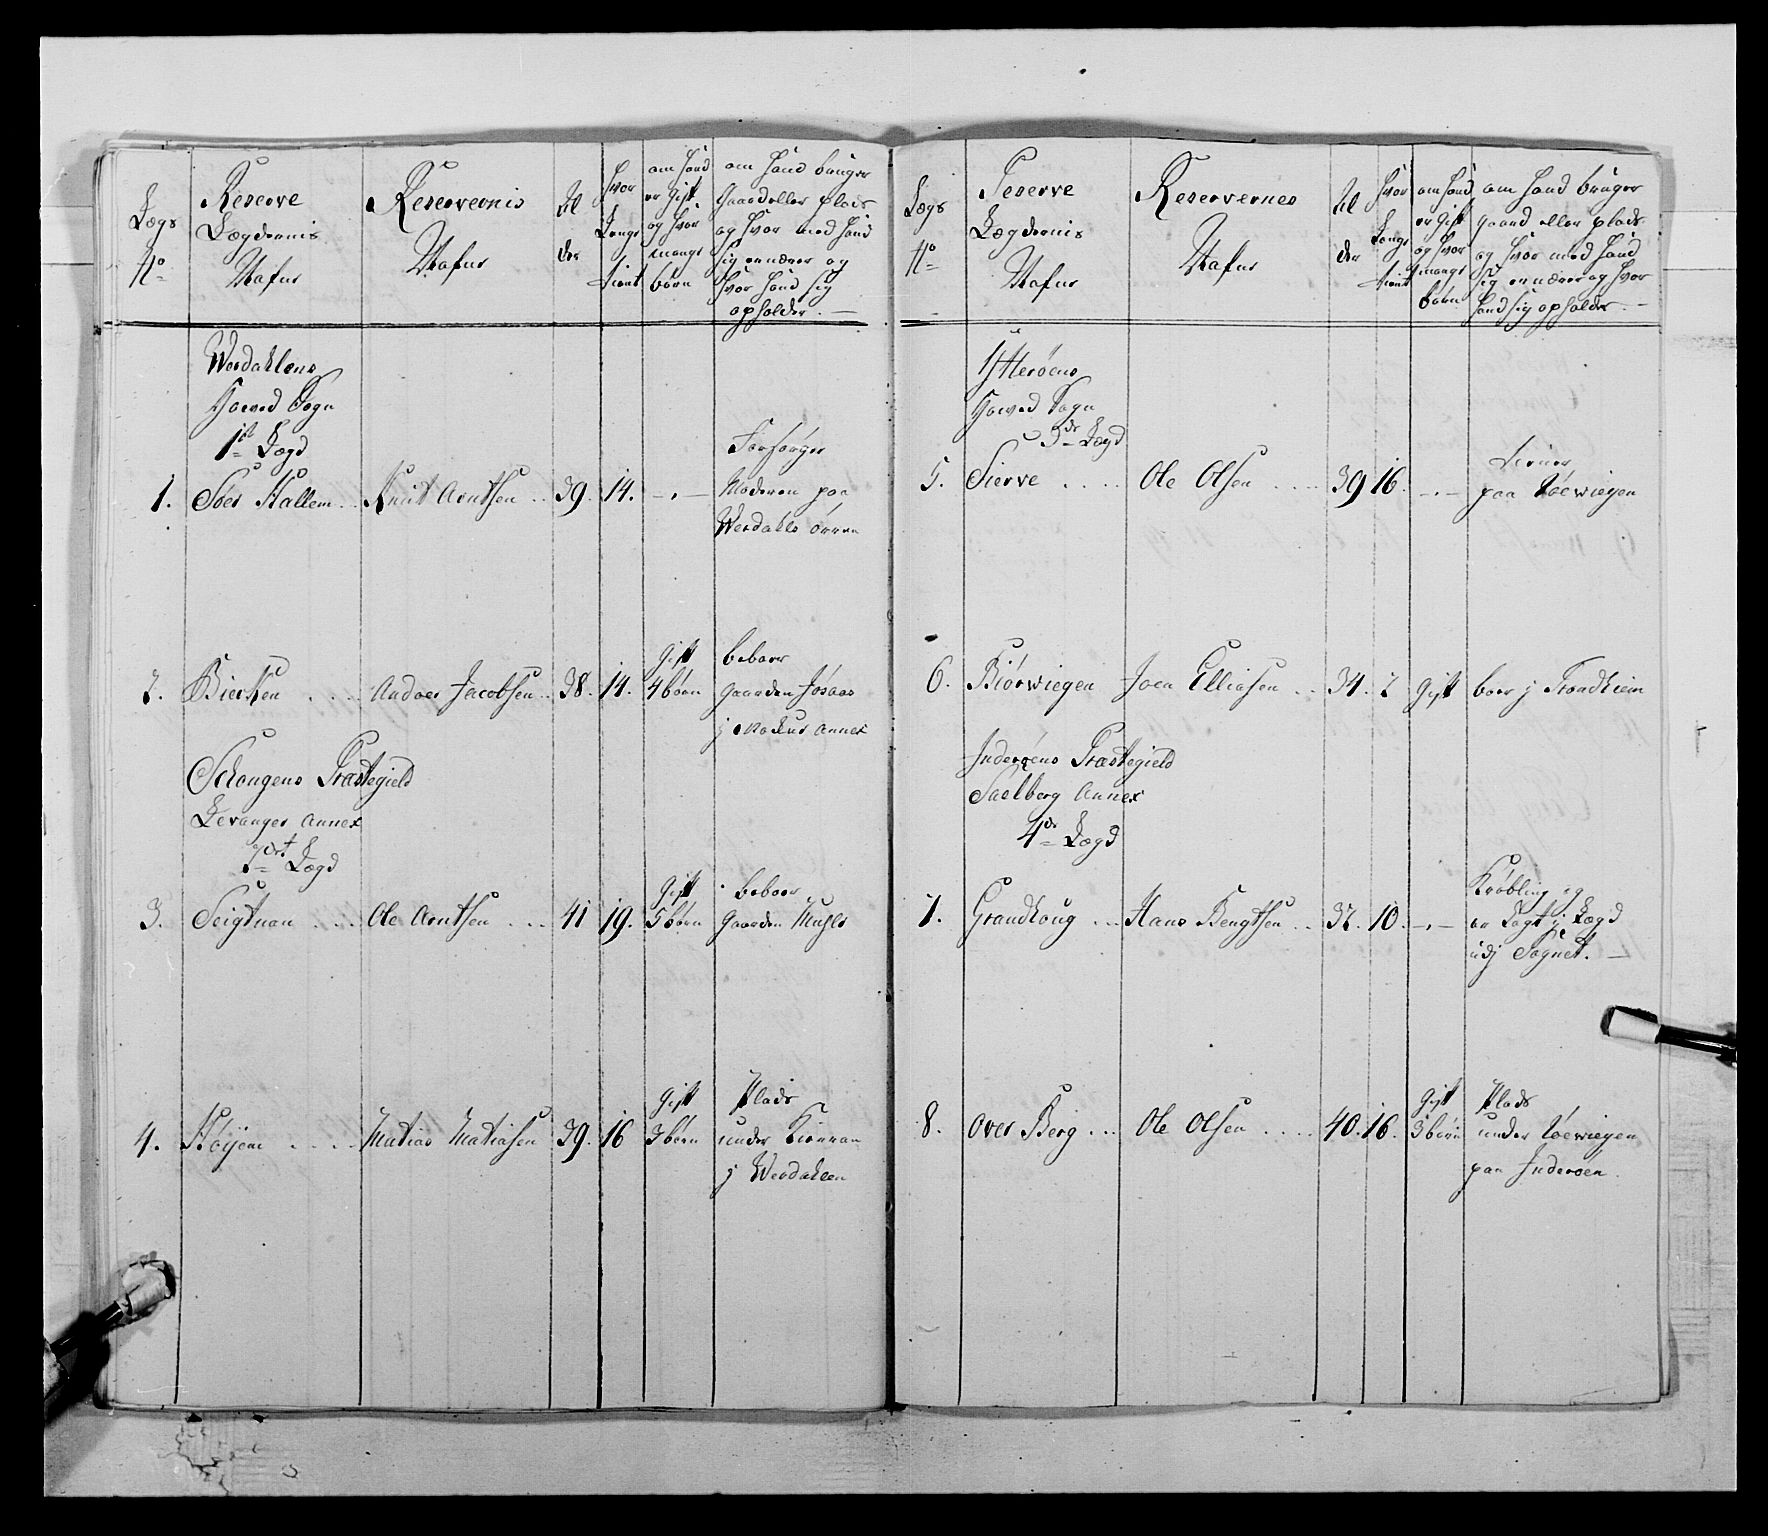 Lægs
No
Reserve
Lægdernis
Nafne
Reservernis
Nafne
Al
der
Hvor
Længe
tient
om hand
er gift
og hvor
mange
børn
om hand bruger
Gaard eller plads
og hvor med hand
sig ernærer og
hvor hand sig
opholder. —
Werdahlens
Hoved Sogn
1st Lægd
1. Soer Hallem .. Knut Arntsen .. 39. 14. —.—
Forsørger
Moderen paa
Werdahls øren
2. Bierken .... Andres Jacobsen .. 38. 14.
Gift
4 børn
beboer
gaarden Jøsaas
j Markus annex
Schongens Præstegield
Levanger Annex
Lægd
3. Seigtnan .... Ole Arntsen ... 41 19.
Gift
5 børn
beboer
gaarden
4. Støijem .... Matias Matiasen 39. 16
Gift
3 børn
Plads
under
j Werdahlen
Lægs
No
Reserve
Lægdernis
Nafne
Reservernes
Nafne
Al
der
Hvor
Længe
tient
om hand
er gift
og hvor
mange
børn
om hand bruger
gaard eller plads
og hvor med hand
sig ernærer og hvor
hand sig opholder. —
Ytterøens
Hoved Sogn
3de Lægd
5. Sierve .... Ole Olsen .... 39 16. —.—
tiener
paa Røewiegen
6. Biørwiegen Joen Elliasen .. 34. 7 Gift boer j Trondhiem
Inderøens Præstegield
Saelberg Annex
4de Lægd
7. Grandhoug ... Hans Bengtsen .. 37. 10. —.—
Krøbling og
er Lagt j Lægd
udj Sognet. —
8. Over Berg ... Ole Olsen .... 40. 16.
Gift
3 børn
Plads
under Røewiegen
paa Inderøen.